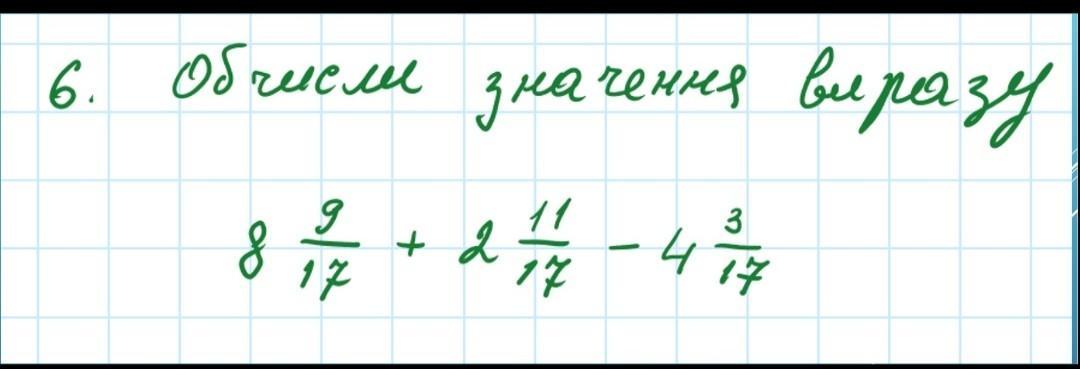 6. Обчисли значення виразу
8 9/17 + 2 11/17 - 4 3/17